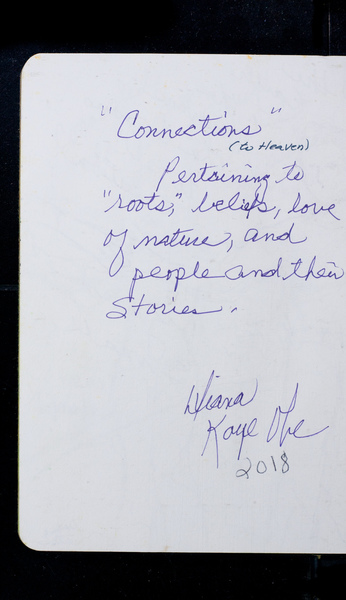 "Connections"
(to Heaven)
Pertaining to
"roots," beliefs, love
of nature, and
people and their
Stories.
Diana
Kaye
2018